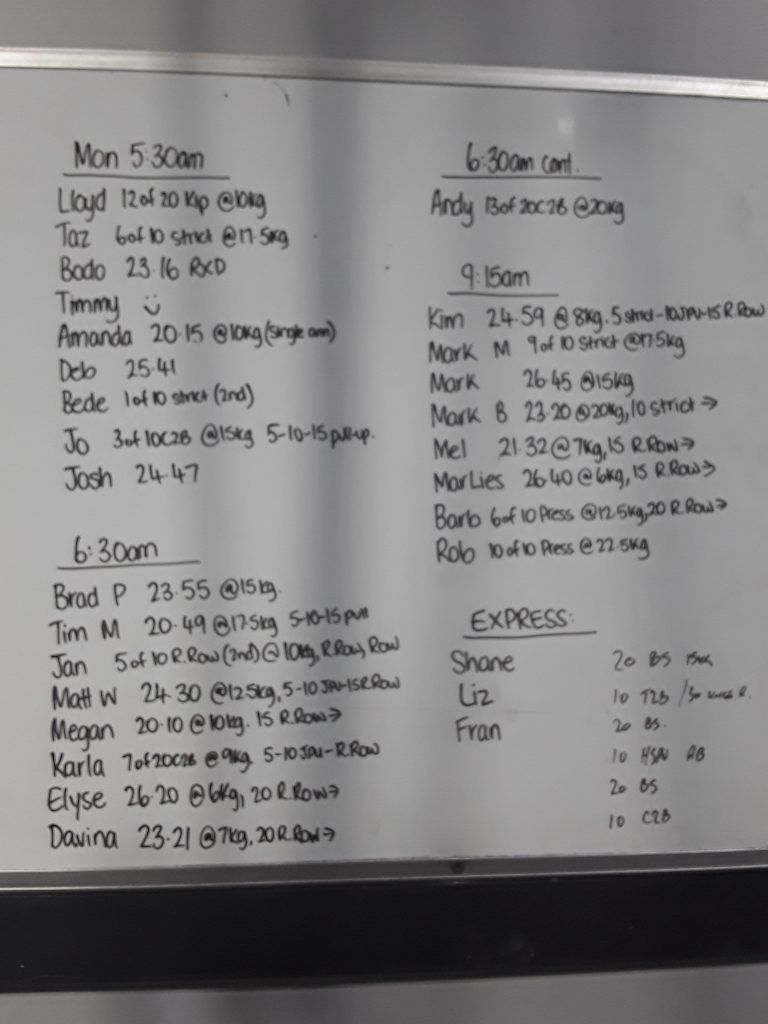 Mon 5:30am
Lloyd 12 of 20 Kip @10kg
Taz 6 of 10 strict @17.5kg
Bodo 23.16 RXD
Timmy
Amanda 20.15 @10kg (single arm)
Deb 25.41
Bede 1 of 10 strict (2nd)
Jo 3 of 10C2B @15kg 5-10-15 pull-up.
Josh 24.47
6:30am
Brad P 23.55 @15kg.
Tim M 20.49 @17.5kg 5-10-15 pull
Jan 5 of 10 R.Row (2nd) @ 10kg, R.Row, Row
Matt W 24.30 @12.5kg, 5-10 JPU-15 R.Row
Megan 20.10 @10kg. 15 R.Row→
Karla 7 of 20C2B @9kg. 5-10 JPU-R.Row
Elyse 26.20 @6kg, 20 R.Row→
Davina 23.21 @7kg, 20 R.Row→
6:30am cont.
Andy 13 of 20C2B @20kg
9:15am
Kim 24.59 @8kg. 5 strict-10JPU-15 R.Row
Mark M 9 of 10 Strict @17.5kg
Mark 26.45 @15kg
Mark B 23.20 @20kg, 10 strict→
Mel 21.32 @7kg, 15 R.Row→
MarLies 26.40 @6kg, 15 R.Row→
Barb 6 of 10 Press @12.5kg, 20 R.Row→
Rob 10 of 10 Press @22.5kg
EXPRESS:
Shane 20 BS
Liz 10 T2B /
Fran 20 BS.
10
20 BS
10 C2B